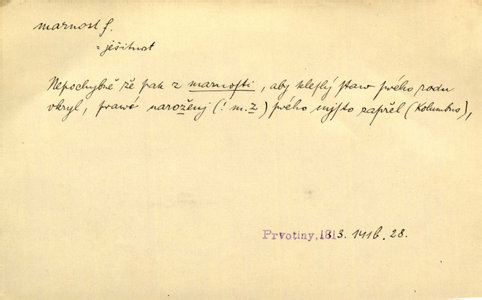 marnost f.
= ješitnost
Nepochybně že pak z marnosti, aby kleslý staw swého rodu
vkryl, prawé narozženj (! m. z) swého mjsto zapřel (Kolumbus),
Prvotiny, 1813. 141b. 28.